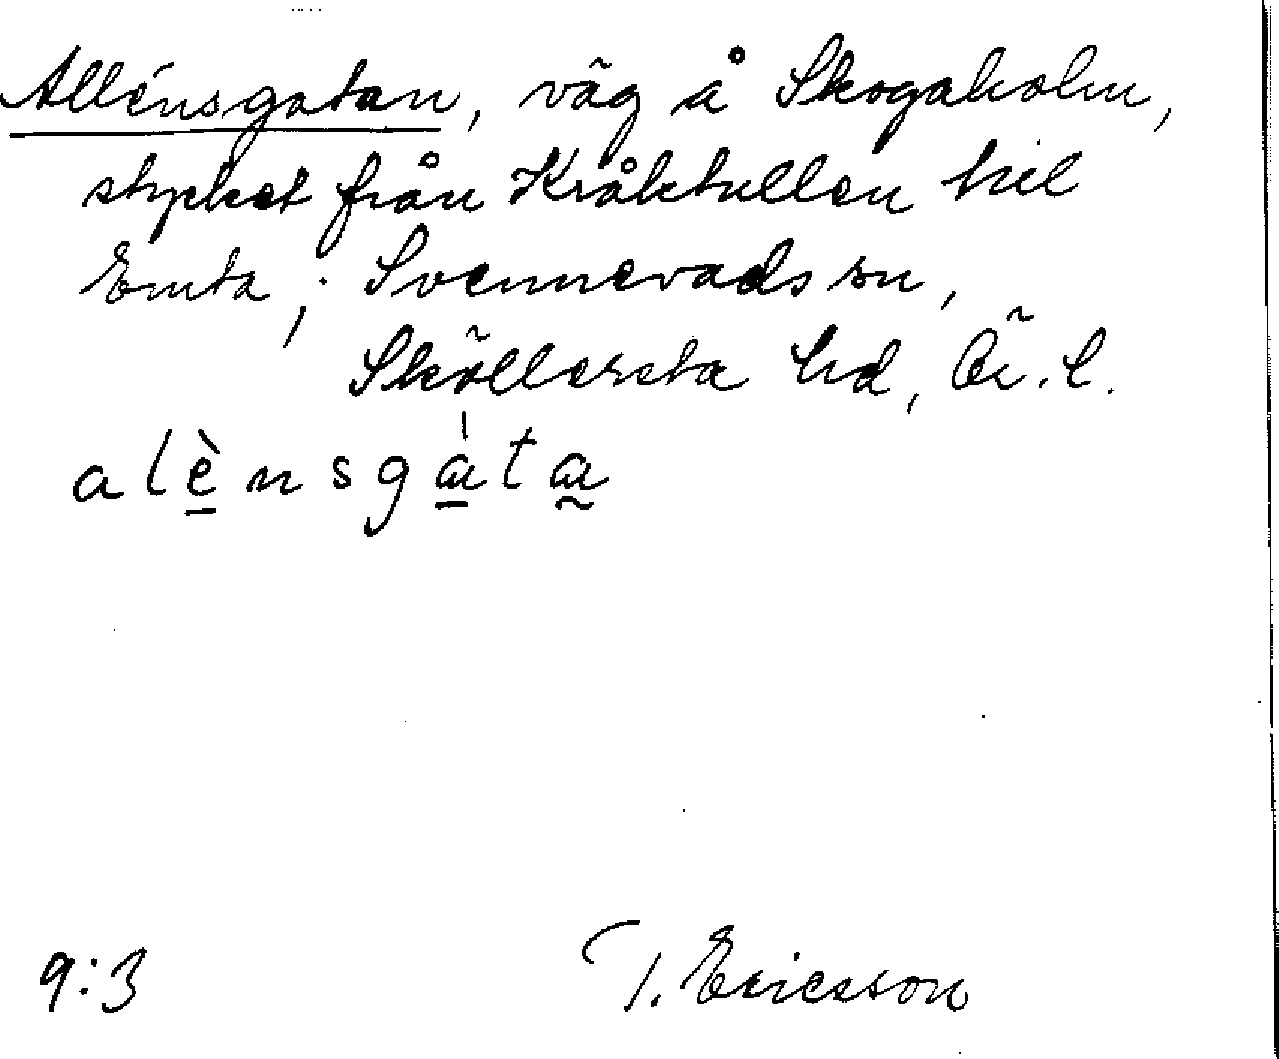 Allénsgatan, väg å Skogaholm,
stycket från Kråktullen till
Emta; Svennevads sn,
Sköllersta hd, Ör. l.
alènsgàta
9:3 T. Ericsson